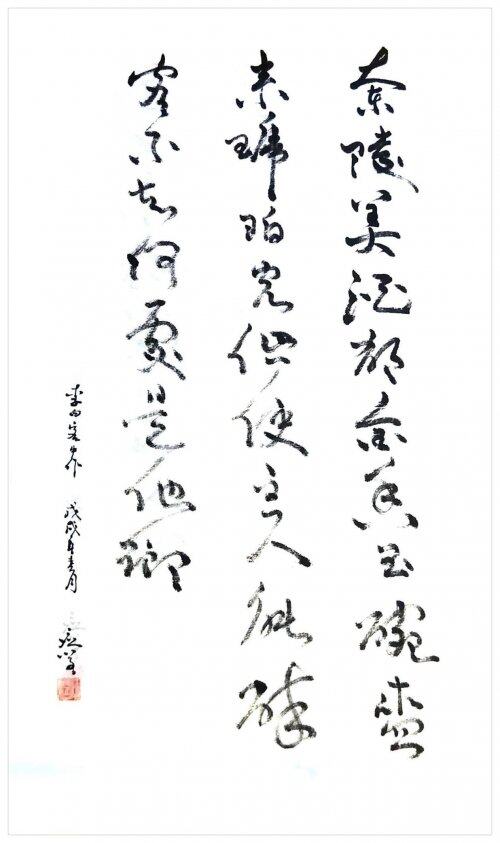 蘭陵美酒郁金香玉碗盛
来琥珀光但使主人能醉
客不知何處是他鄉
李白客中作 戊戌年春月